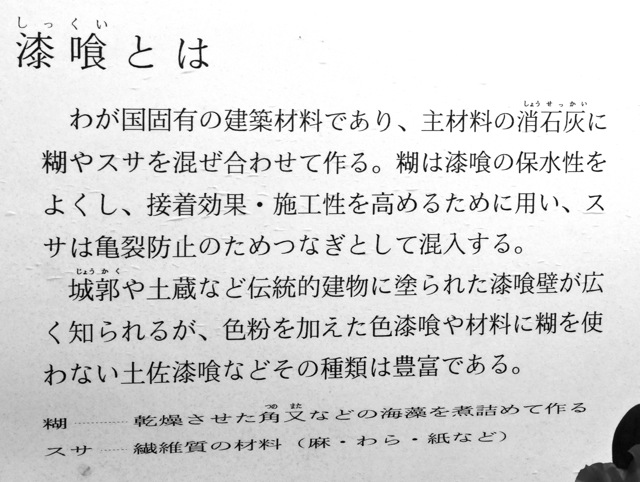 しっくい
漆喰とは
しょうせっかい
わが国固有の建築材料であり、主材料の消石灰に
糊やスサを混ぜ合わせて作る。糊は漆喰の保水性を
よくし、接着効果・施工性を高めるために用い、ス
サは亀裂防止のためつなぎとして混入する。
じょうかく
城郭や土蔵など伝統的建物に塗られた漆喰壁が広
く知られるが、色粉を加えた色漆喰や材料に糊を使
わない土佐漆喰などその種類は豊富である。
つのまた
糊………乾燥させた角又などの海藻を煮詰めて作る
スサ……繊維質の材料（麻・わら・紙など）